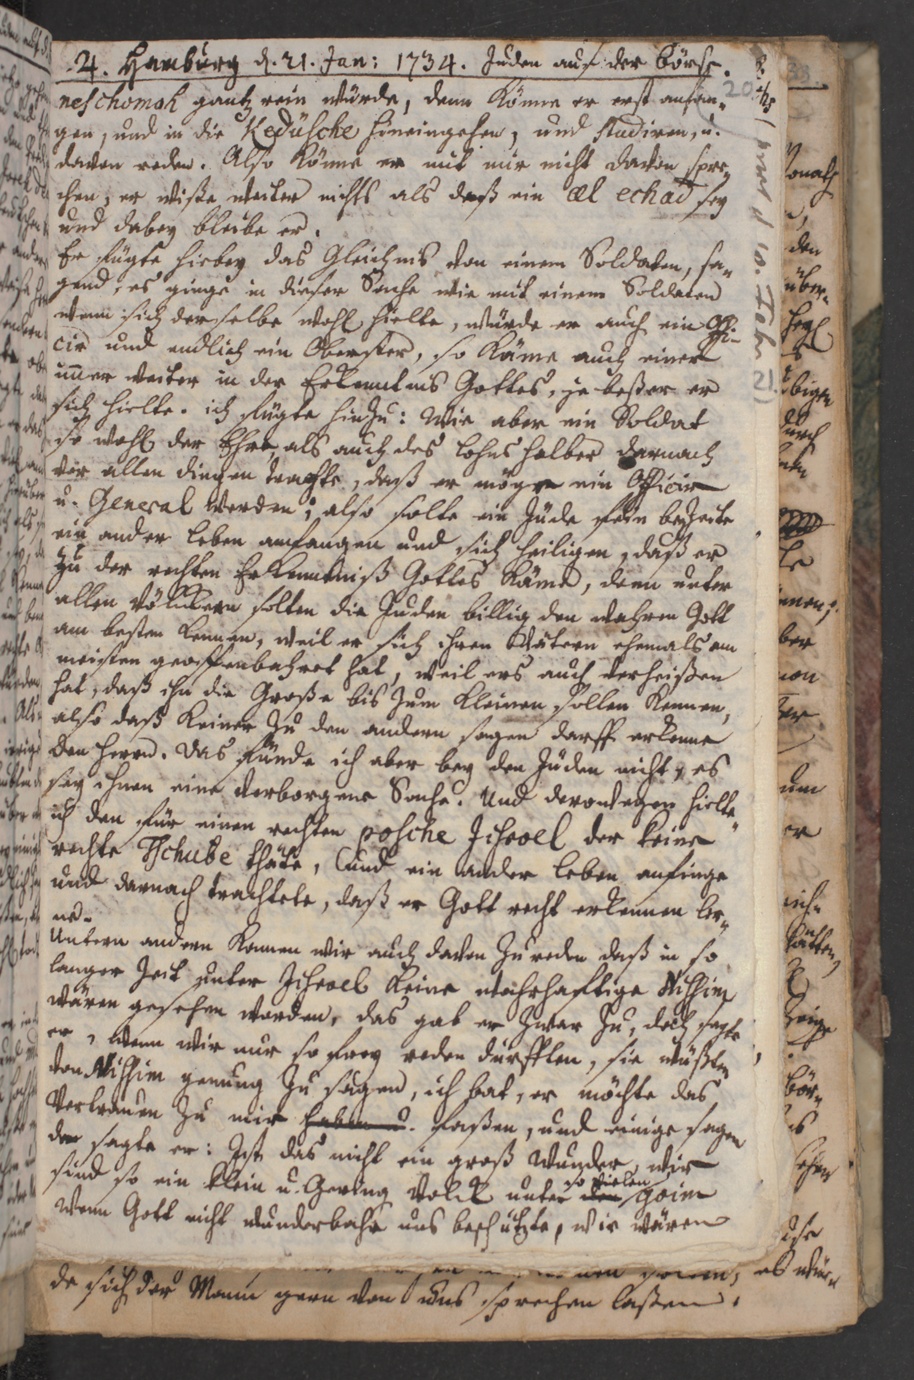 24. Hamburg d. 21. Jan: 1734. Juden auf der Börse.
neschomah gantz rein würde, denn könne er erst anfan-
gen, und in die Kedüsche hineingehen, und studiren, u.
davon reden. Also könne er mit mir nicht davon spre-
chen; er wiße weiter nichts als daß ein æl echad sey
und dabey bleibe er.
Er fügte hirbey das Gleichnis von einem Soldaten, sa-
gend, es ginge in dieser Sache wie mit einem Soldaten
wenn sich derselbe wohl hielte, würde er auch ein Offi-
cir und endlich ein Oberster, so käme auch einer
immer weiter in der Erkenntnis Gottes, je beßer er
sich hielte. ich fügte hinzu: Wie aber ein Soldat
so wohl der Ehre, als auch des Lohns halber darnach
vor allen dingen trachte, daß er möge ein Officir
u. General werden; also solte ein Jude fein bezeite
ein ander Leben anfangen und sich heiligen, daß er
zu der rechten Erkenntniß Gottes käme, denn unter
allen Völckern solten die Juden billig den wahren Gott
am besten kennen, weil er sich ihren Vätern ehemals am
meisten geoffenbahret hat, weil ers auch verheißen
hat, daß ihn die Große bis zum kleinen sollen kennen,
also daß keiner zu den andern sagen darff erkenne
den Herrn. Das fünde ich aber bey den Juden nicht, es
sey ihnen eine verborgene Sache. Und derowegen hielte
ich den für einen rechten posche Jisroel der keine
rechte Tschube thäte, (und ein ander Leben anfinge
und darnach trachtete, daß er Gott recht erkennen ler-
ne.
Untern andern kamen wir auch davon zu reden daß in so
langer Zeit unter Jisroel keine wahrhafftige Nissim
wären gesehen worden, das gab er zwar zu, doch sagte
er, wenn wir nur so frey reden dürfften, sie wüßten
von Nissim genung zu sagen, ich bat, er möchte das
Vertrauen zu mir haben u. faßen, und einige sagen
der sagte er: Ist das nicht ein groß Wunder, wir
sind so ein klein u. Gering Volck unter den so vielen goiim
Wenn Gott nicht wunderbahr uns beschützte, wir wären
de sich der Mann gern von uns sprechen laßen.